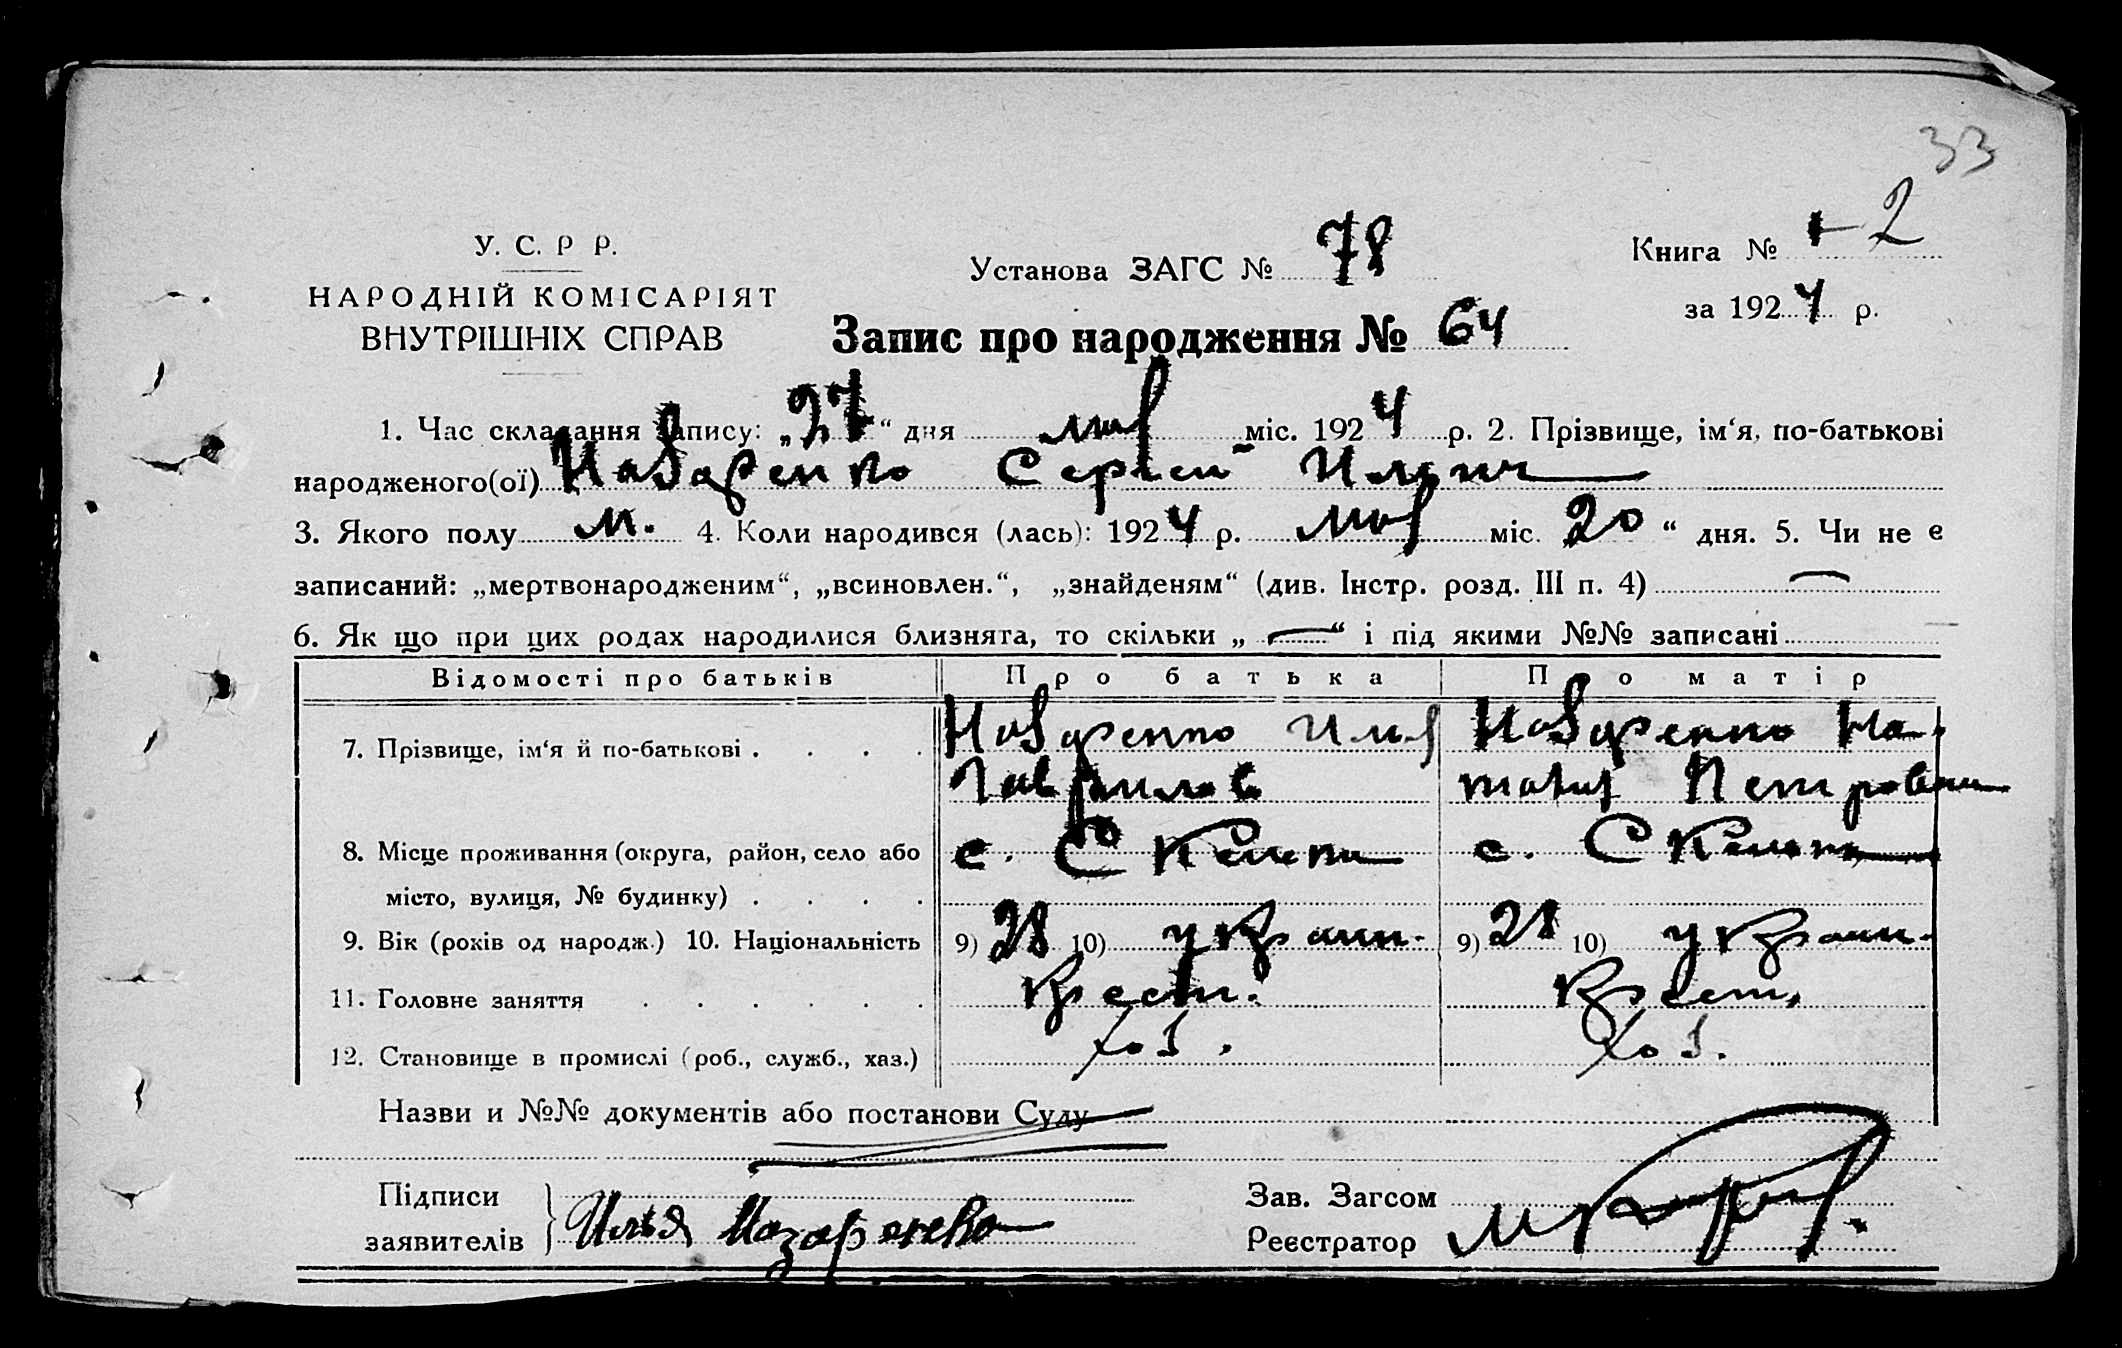 33
У. С. Р Р.
НАРОДНІЙ КОМІСАРІЯТ
ВНУТРІШНІХ СПРАВ
Установа ЗАГС № 78
Книга № 2
за 1924 р.
Запис про народження № 64
1. Час складання запису: „27“ дня мая міс. 1924 р. 2. Прізвище, ім‘я, по-батькові
народженого(ої) Назаренко Сергей Ильич
3. Якого полу м. 4. Коли народився (лась): 1924 р. мая міс. 20 “ дня. 5. Чи не є
записаний: „мертвонародженим“, „всиновлен.“, „знайденям“ (див. Інстр. розд. III п. 4) —
6. Як що при цих родах народилися близнята, то скільки „ — “ і під якими №№ записані
Відомості про батьків Про батька Про матір
7. Прізвище, ім‘я й по-батькові . . . . Назаренко Илья Назаренко На-
Гаврилов талия Петровна
8. Місце проживання (округа, район, село або с. Скельки с. Скельки
місто, вулиця, № будинку) . . . .
9. Вік (років од народж.) 10. Національність 9) 28 10) украин. 9) 28 10) украин.
11. Головне заняття . . . . . . Крест. Крест.
12. Становище в промислі (роб., служб., хаз.) хоз. хоз.
Назви и №№ документів або постанови Суду —
Підписи
заявителів } Илья Назаренко
Зав. Загсом
Реєстратор